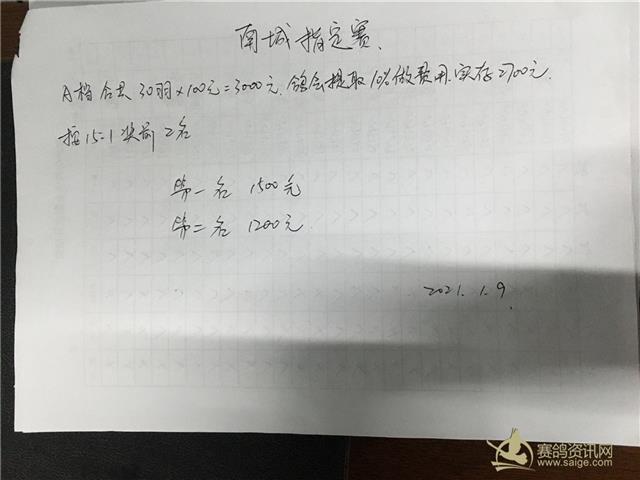 南城指定赛.
A档合共30羽×100元=3000元.鸽会提取10%做费用.实存2700元.
按15:1奖前2名
第一名 1500元
第二名 1200元
2021.1.9.
赛鸽资讯网
www.saige.com